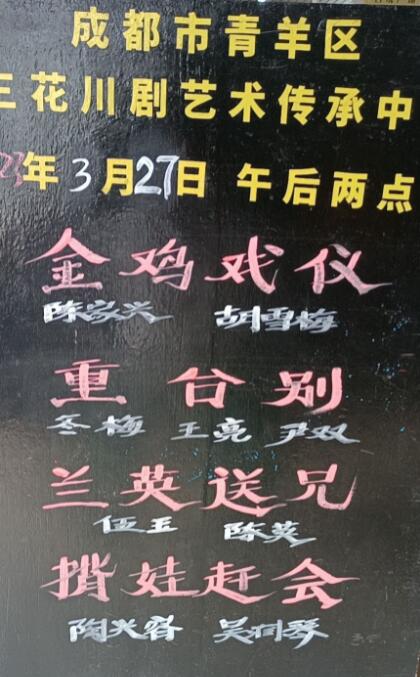 成都市青羊区
三花川剧艺术传承中
23年3月27日 午后两点
金鸡戏仪
陈家兴 胡雪梅
重台别
冬梅 王亮 尹双
兰英送兄
伍玉 陈英
揹娃赶会